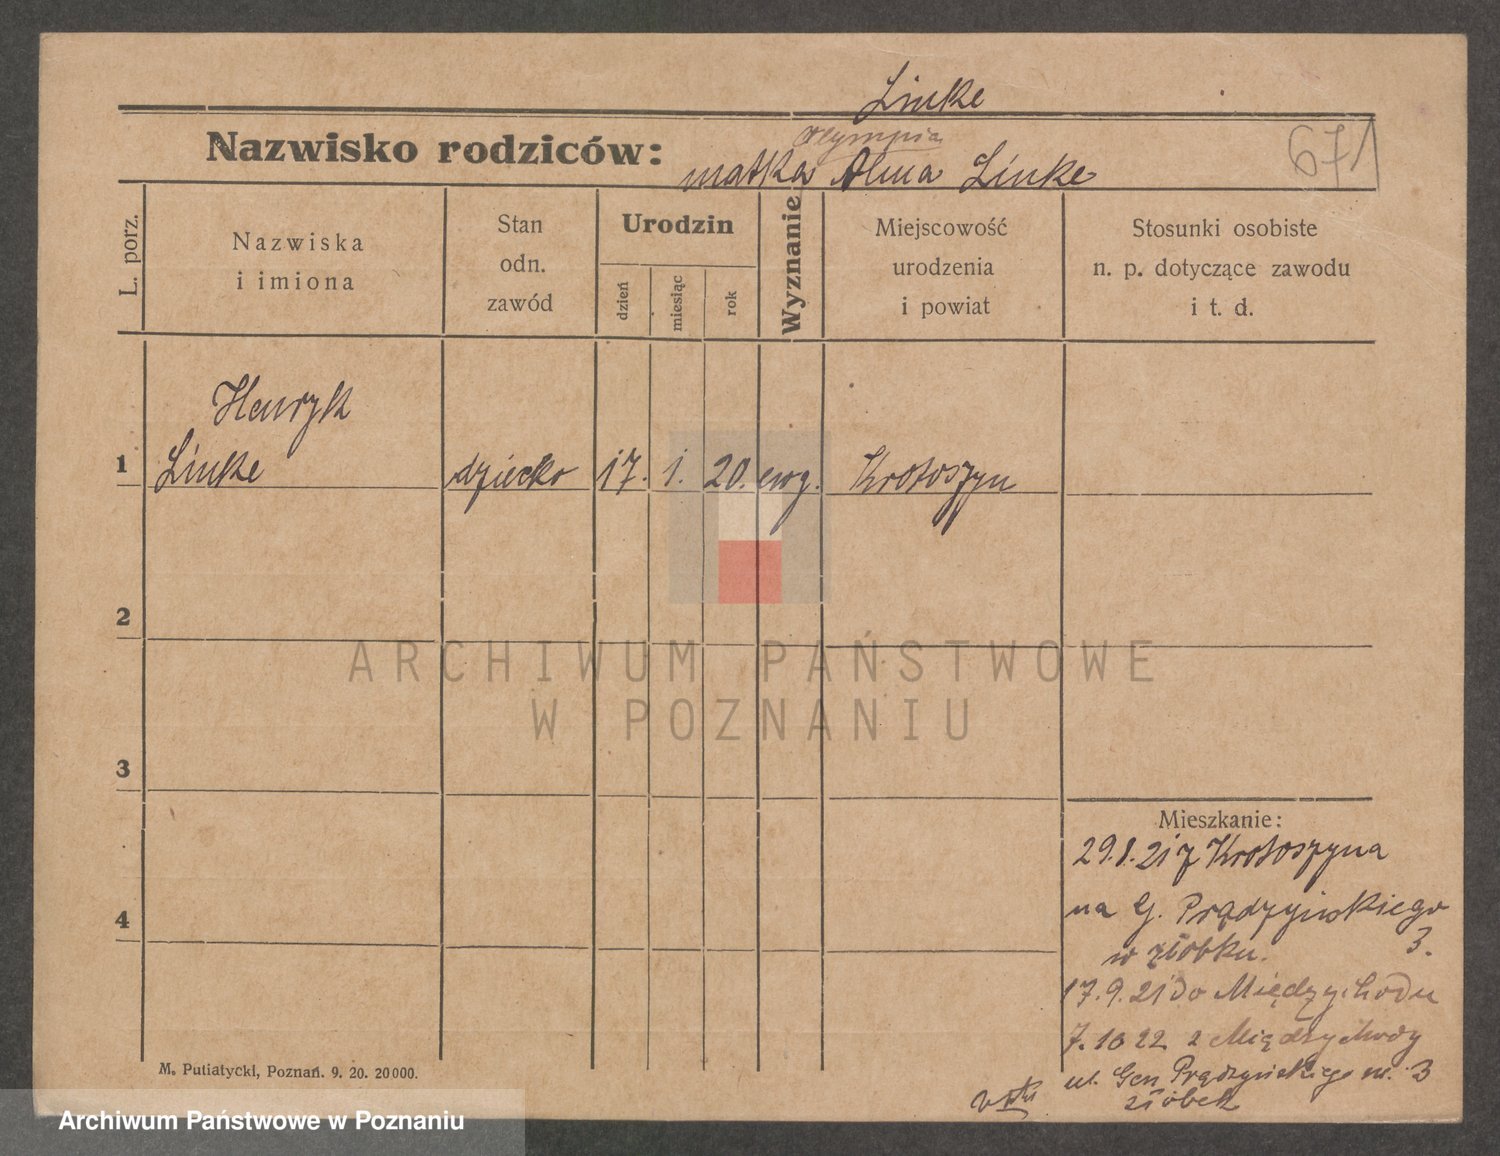 Linke
Nazwisko rodziców:
Olympia
matka Alma Linke
671
L. porz.
Nazwiska
i imiona
Stan
odn.
zawód
Urodzin
dzień
miesiąc
rok
Wyznanie
Miejscowość
urodzenia
i powiat
Stosunki osobiste
n. p. dotyczące zawodu
i t. d.
Henryk
1 Linke dziecko 17. 1. 20. ewg. Krotoszyn
2
ARCHIWUM PAŃSTWOWE
W POZNANIU
3
4
Mieszkanie:
29.8.21 z Krotoszyna
na G. Prądzyńskiego
3.
w żłobku.
17.9.21 do Międzychodu
7.10 22 z Międzychody
ul. Gen Prądzyńskiego nr. 3
żłobek
M. Putiatycki, Poznań. 9. 20. 20000.
Archiwum Państwowe w Poznaniu